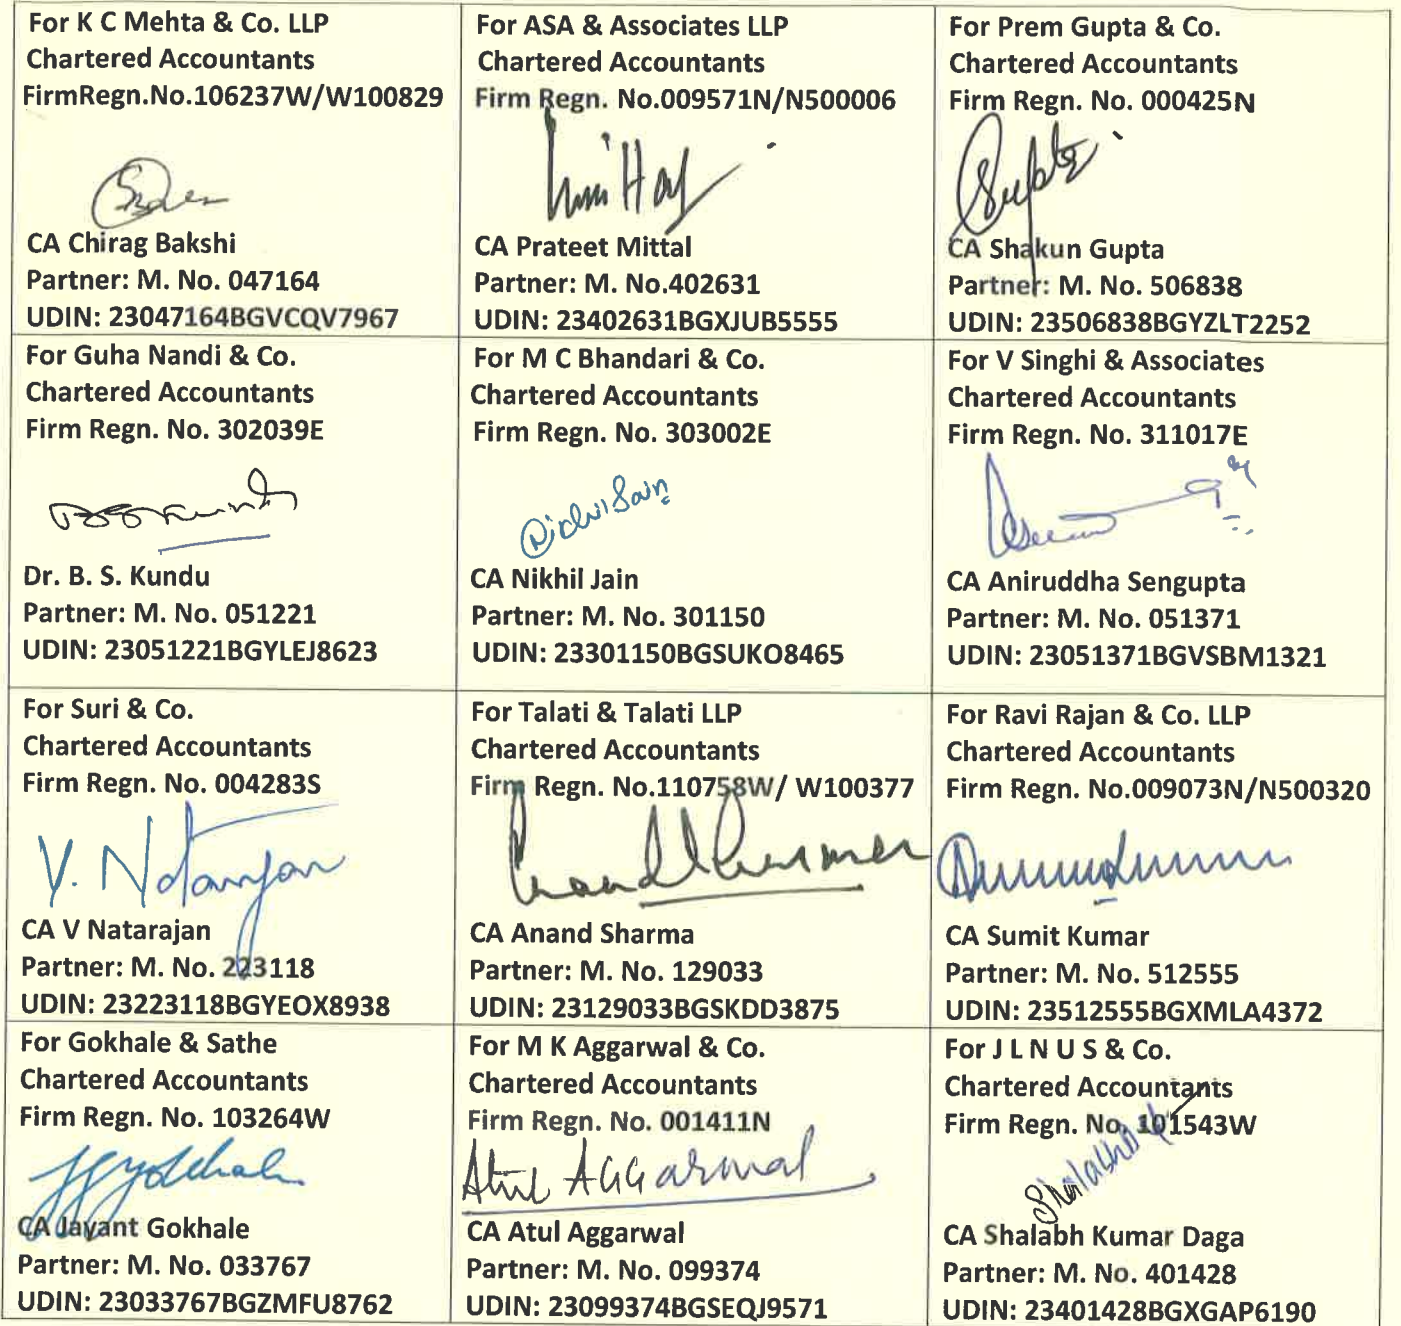 For K C Mehta & Co. LLP
Chartered Accountants
FirmRegn.No.106237W/W100829
CA Chirag Bakshi
Partner: M. No. 047164
UDIN: 23047164BGVCQV7967
For ASA & Associates LLP
Chartered Accountants
Firm Regn. No.009571N/N500006
Mittal
CA Prateet Mittal
Partner: M. No.402631
UDIN: 23402631BGXJUB5555
For Prem Gupta & Co.
Chartered Accountants
Firm Regn. No. 000425N
Gupta
CA Shakun Gupta
Partner: M. No. 506838
UDIN: 23506838BGYZLT2252
For Guha Nandi & Co.
Chartered Accountants
Firm Regn. No. 302039E
BSKundu
Dr. B. S. Kundu
Partner: M. No. 051221
UDIN: 23051221BGYLEJ8623
For M C Bhandari & Co.
Chartered Accountants
Firm Regn. No. 303002E
Nikhil Jain
CA Nikhil Jain
Partner: M. No. 301150
UDIN: 23301150BGSUKO8465
For V Singhi & Associates
Chartered Accountants
Firm Regn. No. 311017E
CA Aniruddha Sengupta
Partner: M. No. 051371
UDIN: 23051371BGVSBM1321
For Suri & Co.
Chartered Accountants
Firm Regn. No. 004283S
V. Natarajan
CA V Natarajan
Partner: M. No. 223118
UDIN: 23223118BGYEOX8938
For Talati & Talati LLP
Chartered Accountants
Firm Regn. No.110758W/ W100377
Anand Sharma
CA Anand Sharma
Partner: M. No. 129033
UDIN: 23129033BGSKDD3875
For Ravi Rajan & Co. LLP
Chartered Accountants
Firm Regn. No.009073N/N500320
CA Sumit Kumar
Partner: M. No. 512555
UDIN: 23512555BGXMLA4372
For Gokhale & Sathe
Chartered Accountants
Firm Regn. No. 103264W
Gokhale
CA Jayant Gokhale
Partner: M. No. 033767
UDIN: 23033767BGZMFU8762
For M K Aggarwal & Co.
Chartered Accountants
Firm Regn. No. 001411N
Atul Aggarwal
CA Atul Aggarwal
Partner: M. No. 099374
UDIN: 23099374BGSEQJ9571
For J L N U S & Co.
Chartered Accountants
Firm Regn. No. 101543W
Shalabh
CA Shalabh Kumar Daga
Partner: M. No. 401428
UDIN: 23401428BGXGAP6190